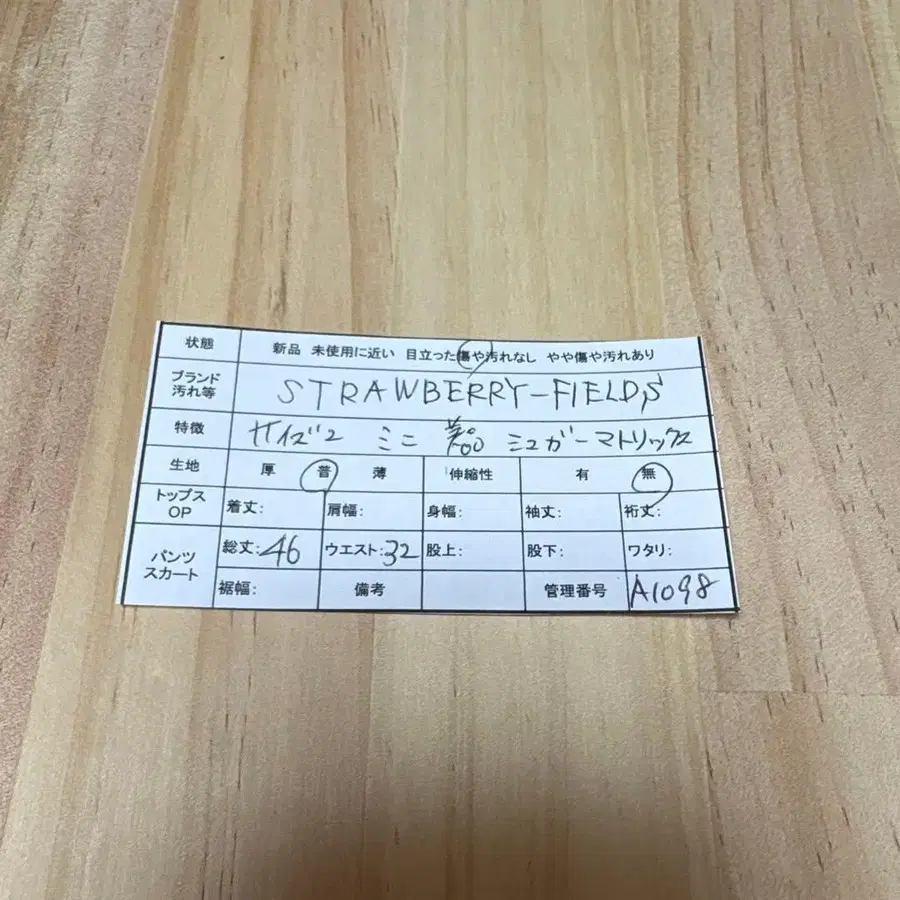 状態 新品 未使用に近い 目立った傷や汚れなし やや傷や汚れあり
ブランド 汚れ等 STRAWBERRY-FIELDS
特徴 サイズ2 ミニ ミュガーマトリックス
生地 厚 普 薄 伸縮性 有 無
トップス OP 着丈: 肩幅: 身幅: 袖丈: 裄丈:
パンツ スカート 総丈:46 ウエスト:32 股上: 股下: ワタリ:
裾幅: 備考 管理番号 A1098